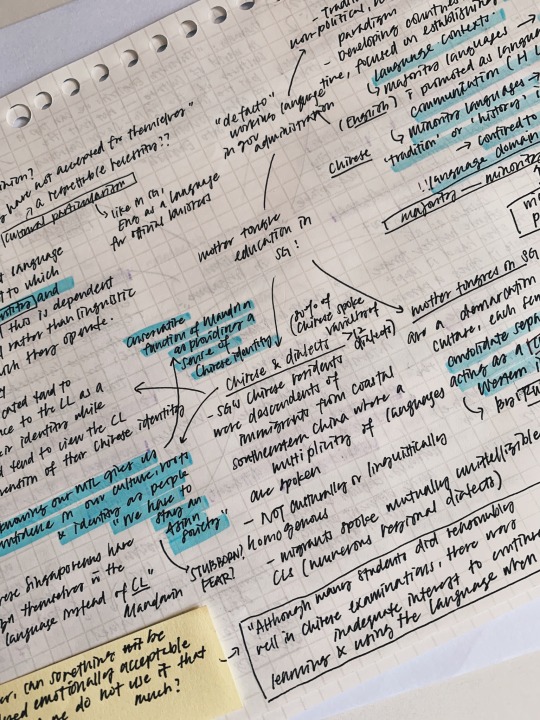 non-political,
paradigm
- Developing countries
time, focused on establishing
language contexts.
↳ majority languages →
(English) is promoted as language
communication (
↳ minority languages →
"tradition" or 'history'
→ confined to
!language domain
majority — minority
"de facto"
working language
in gov
administration
Chinese
have not accepted for themselves"
→ a regrettable necessity??
cultural particularism
↳ like in SG,
Eng as a language
for official business
mother tongue
education in
SG!
t language
to which
identity) and
this is dependent
rather than linguistic
which they operate.
tend to
to the LL as a
identity while
tend to view the CL
of their Chinese identity
conservative
function of Mandarin
as providing a
sense of
Chinese identity
(80% of
Chinese spoke
varieties of
12
dialects)
Chinese & dialects
- SG's Chinese residents
were descendents of
immigrants from coastal
southeastern China where a
multiplicity of languages
are spoken
- Not culturally or linguistically
homogenous
- migrants spoke mutually unintelligible
CLs (numerous regional dialects)
mother tongues in SG
are a demarcation
culture, each
consolidate
acting as a
Western
↳
knowing our MTL gives us
confidence in our culture, roots
& identity as people
"We have to
stay an
Asian
society"
STUBBORN?
FEAR?
Singaporeans have
themselves in the
language instead of CL"
Mandarin
can something not be
emotionally acceptable
we do not use it that
much?
→ "Although many students did reasonably
well in Chinese examinations, there was
inadequate interest to continue
learning & using the language when